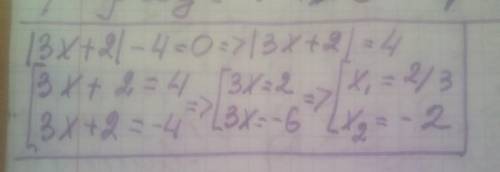 |3x+2|-4=0=>|3x+2|=4
[3x+2=4
3x+2=-4 => [3x=2
3x=-6 => [x₁=2/3
x₂=-2